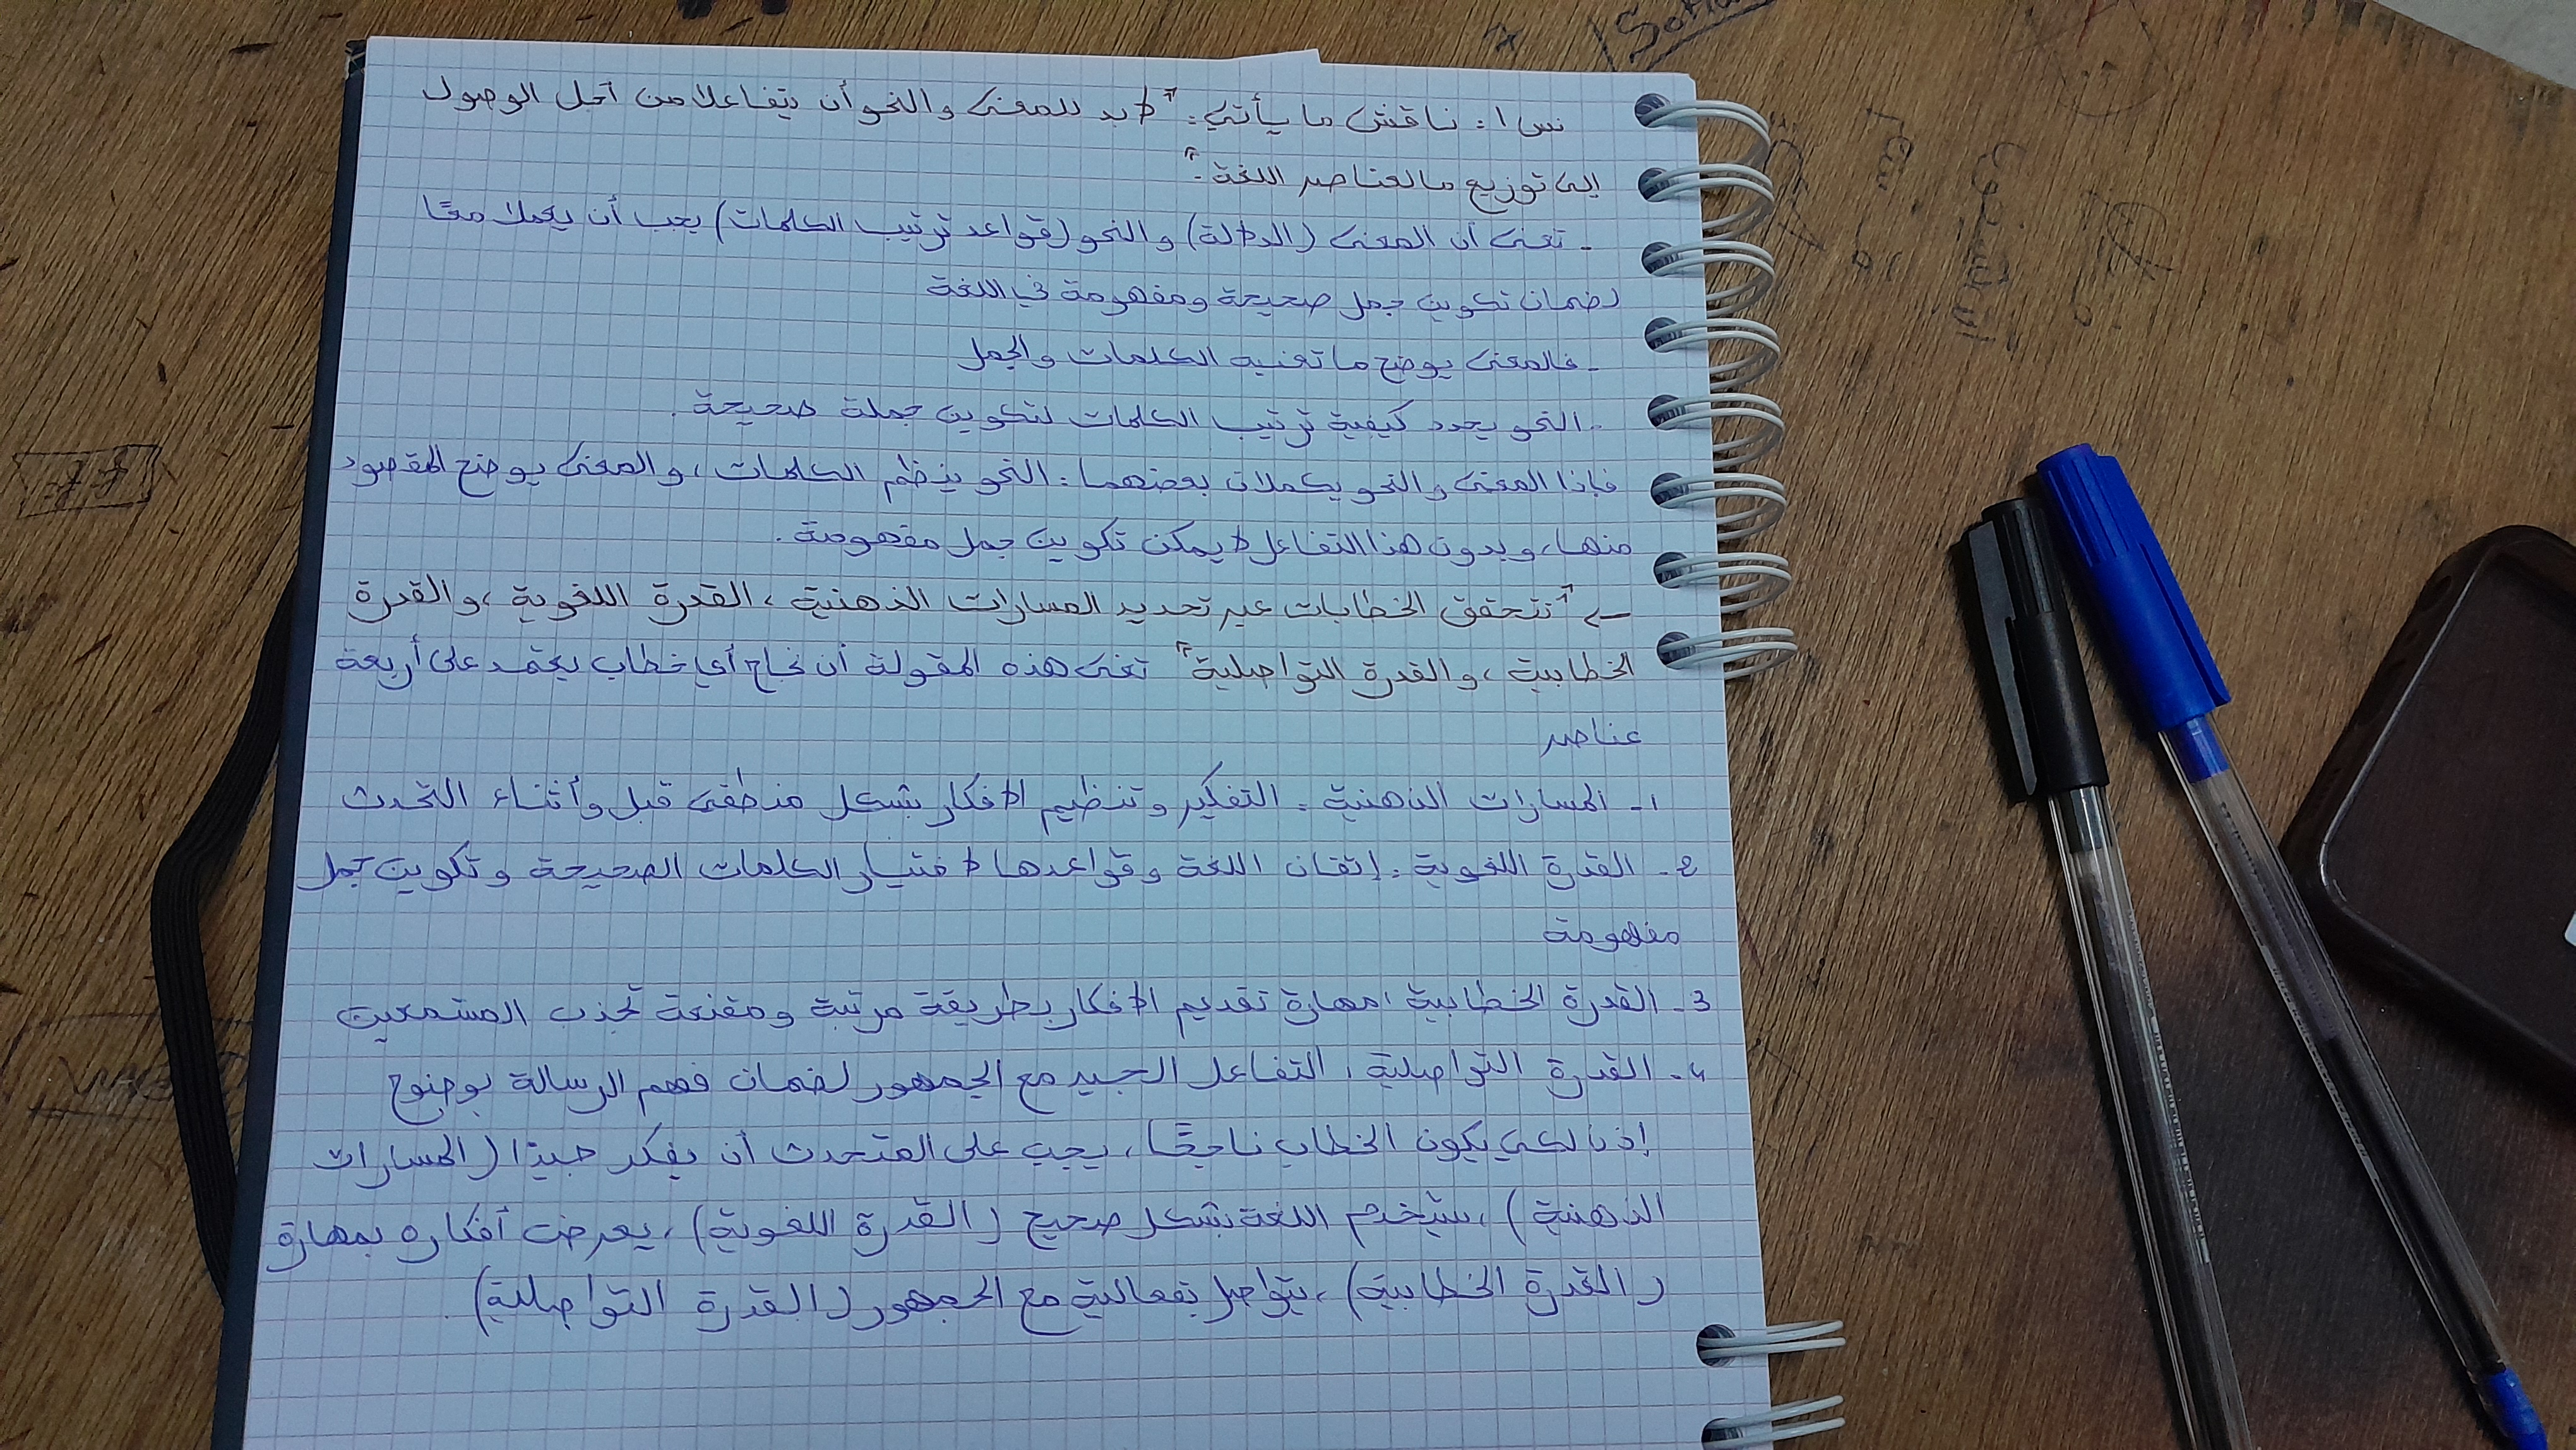 س1: ناقش ما يأتي: "لابد للمعنى والنحو أن يتفاعلا من أجل الوصول
إلى توزيع ما لعناصر اللغة."
- تعنى أن المعنى (الدلالة) والنحو (قواعد ترتيب الكلمات) يجب أن يعملا معًا
لضمان تكوين جمل صحيحة ومفهومة في اللغة
- فالمعنى يوضح ما تعنيه الكلمات والجمل
- النحو يحدد كيفية ترتيب الكلمات لتكوين جملة صحيحة.
فإذا المعنى والنحو يكملان بعضهما: النحو ينظم الكلمات، والمعنى يوضح المقصود
منها، وبدون هذا التفاعل لا يمكن تكوين جمل مفهومة.
← "تتحقق الخطابات عبر تحديد المسارات الذهنية، القدرة اللغوية، والقدرة
الخطابية، والقدرة التواصلية" تعنى هذه المقولة أن نجاح أي خطاب يعتمد على أربعة
عناصر
1- المسارات الذهنية: التفكير وتنظيم الأفكار بشكل منطقى قبل وأثناء التحدث
2- القدرة اللغوية: إتقان اللغة وقواعدها لاختيار الكلمات الصحيحة وتكوين جمل
مفهومة
3- القدرة الخطابية: مهارة تقديم الأفكار بطريقة مرتبة ومقنعة تجذب المستمعين
4- القدرة التواصلية: التفاعل الجيد مع الجمهور لضمان فهم الرسالة بوضوح
إذنا لكي يكون الخطاب ناجحًا، يجب على المتحدث أن يفكر جيدًا (المسارات
الذهنية)، يستخدم اللغة بشكل صحيح (القدرة اللغوية)، يعرض أفكاره بمهارة
(القدرة الخطابية)، يتواصل بفعالية مع الجمهور (القدرة التواصلية).